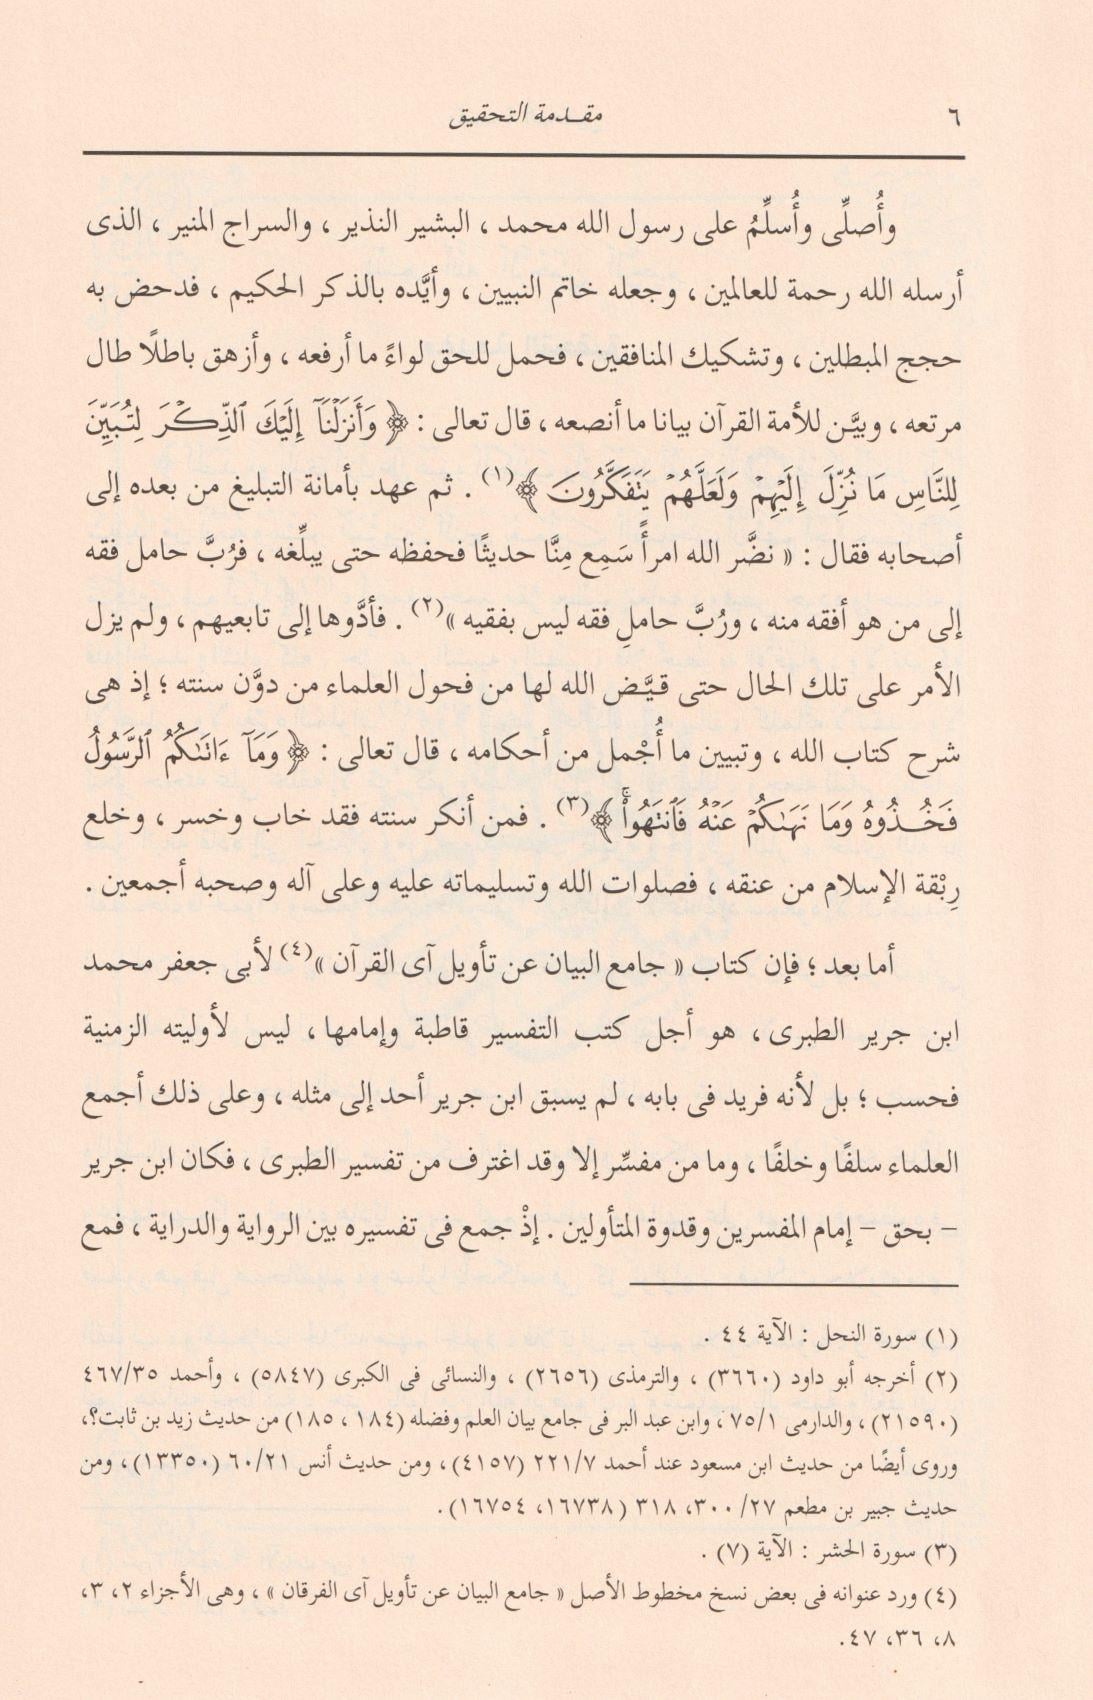 ٦
مقدمة التحقيق
وأُصلِّى وأُسلِّمُ على رسول الله محمد ، البشير النذير ، والسراج المنير ، الذى
أرسله الله رحمة للعالمين ، وجعله خاتم النبيين ، وأيَّده بالذكر الحكيم ، فدحض به
حجج المبطلين ، وتشكيك المنافقين ، فحمل للحق لواءً ما أرفعه ، وأزهق باطلًا طال
مرتعه ، وبيَّن للأمة القرآن بيانا ما أنصعه ، قال تعالى : ﴿ وَأَنزَلْنَآ إِلَيْكَ ٱلذِّكْرَ لِتُبَيِّنَ
لِلنَّاسِ مَا نُزِّلَ إِلَيْهِمْ وَلَعَلَّهُمْ يَتَفَكَّرُونَ ﴾(١) . ثم عهد بأمانة التبليغ من بعده إلى
أصحابه فقال : « نضَّر الله امرأً سَمِع مِنَّا حديثًا فحفظه حتى يبلِّغه ، فرُبَّ حامل فقه
إلى من هو أفقه منه ، ورُبَّ حاملِ فقه ليس بفقيه »(٢) . فأدَّوها إلى تابعيهم ، ولم يزل
الأمر على تلك الحال حتى قيَّض الله لها من فحول العلماء من دوَّن سنته ؛ إذ هى
شرح كتاب الله ، وتبيين ما أُجْمل من أحكامه ، قال تعالى : ﴿ وَمَآ ءَاتَىٰكُمُ ٱلرَّسُولُ
فَخُذُوهُ وَمَا نَهَىٰكُمْ عَنْهُ فَٱنتَهُواْۚ ﴾(٣) . فمن أنكر سنته فقد خاب وخسر ، وخلع
رِبْقة الإسلام من عنقه ، فصلوات الله وتسليماته عليه وعلى آله وصحبه أجمعين .
أما بعد ؛ فإن كتاب « جامع البيان عن تأويل آى القرآن »(٤) لأبى جعفر محمد
ابن جرير الطبرى، هو أجل كتب التفسير قاطبة وإمامها، ليس لأوليته الزمنية
فحسب ؛ بل لأنه فريد فى بابه ، لم يسبق ابن جرير أحد إلى مثله ، وعلى ذلك أجمع
العلماء سلفًا وخلفًا ، وما من مفسِّر إلا وقد اغترف من تفسير الطبرى ، فكان ابن جرير
– بحق – إمام المفسرين وقدوة المتأولين . إذْ جمع فى تفسيره بين الرواية والدراية ، فمع
(١) سورة النحل : الآية ٤٤ .
(٢) أخرجه أبو داود (٣٦٦٠) ، والترمذى (٢٦٥٦) ، والنسائى فى الكبرى (٥٨٤٧) ، وأحمد ٤٦٧/٣٥
(٢١٥٩٠) ، والدارمى ٧٥/١ ، وابن عبد البر فى جامع بيان العلم وفضله (١٨٤ ، ١٨٥) من حديث زيد بن ثابت؟،
وروى أيضًا من حديث ابن مسعود عند أحمد ٢٢١/٧ (٤١٥٧) ، ومن حديث أنس ٦٠/٢١ (١٣٣٥٠) ، ومن
حديث جبير بن مطعم ٣٠٠/٢٧، ٣١٨ (١٦٧٣٨، ١٦٧٥٤).
(٣) سورة الحشر : الآية (٧) .
(٤) ورد عنوانه فى بعض نسخ مخطوط الأصل « جامع البيان عن تأويل آى الفرقان » ، وهى الأجزاء ٢، ٣،
٨، ٣٦، ٤٧.